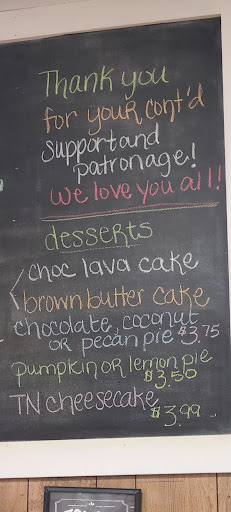 Thank you
for your cont'd
support and
patronage!
we love you all!
desserts
choc lava cake
brown butter cake
chocolate, coconut
or pecan pie $3.75
pumpkin or lemon pie
$3.50
TN cheesecake
$3.99